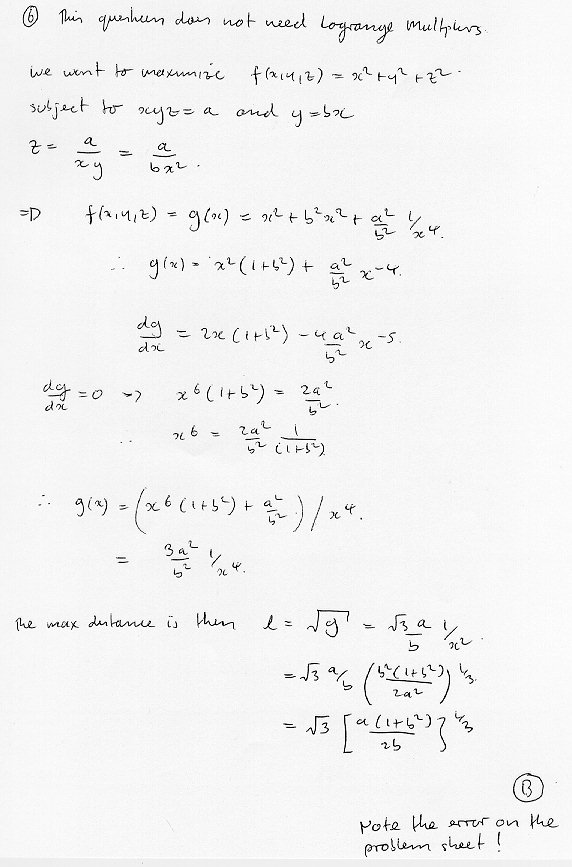 ⑥ This question does not need Lagrange Multipliers.
we want to maximize f(x,y,z) = x² + y² + z².
subject to xyz = a and y = bx
z = a/xy = a/bx².
⇒ f(x,y,z) = g(x) = x² + b²x² + a²/b² 1/x⁴.
∴ g(x) = x²(1+b²) + a²/b² x⁻⁴.
dg/dx = 2x(1+b²) - 4a²/b² x⁻⁵.
dg/dx = 0 → x⁶(1+b²) = 2a²/b².
∴ x⁶ = 2a²/b² 1/(1+b²)
∴ g(x) = (x⁶(1+b²) + a²/b²) / x⁴.
= 3a²/b² 1/x⁴.
The max distance is then l = √g = √3 a/b 1/x².
= √3 a/b (b²(1+b²)/2a²)^1/3.
= √3 [a(1+b²)/2b]^1/3
Ⓑ
Note the error on the
problem sheet!